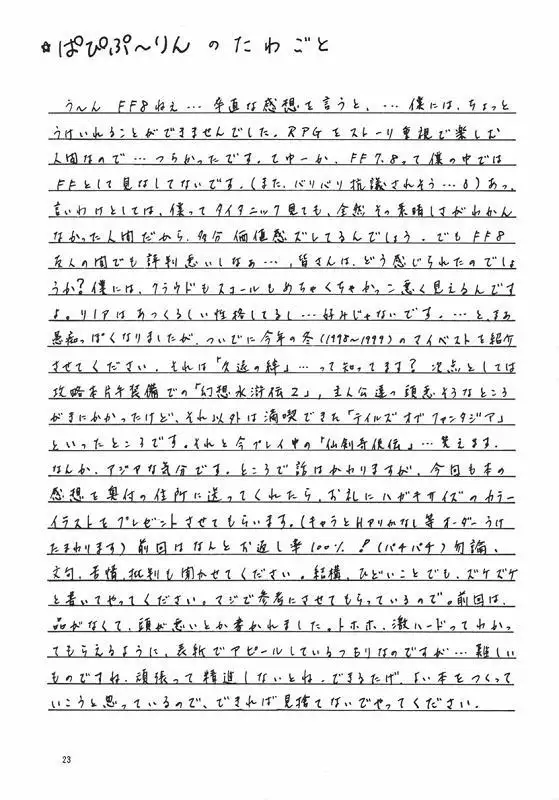 ☆ぱぴぷ～りんのたわごと
う～ん FF8ねぇ… 率直な感想を言うと、… 僕には、ちょっと
うけいれることができませんでした。RPGをストーリ重視で楽しむ
人間なので… つらかったです。てゆーか、FF7.8って僕の中では
FFとして見なしてないです。(また、バリバリ抗議されそう…)あっ、
言いわけとしては、僕ってタイタニック見ても、全然その素晴しさがわかん
なかった人間だから、多分価値感ズレてるんでしょう。でもFF8
友人の間でも評判悪いしなぁ…、皆さんは、どう感じられたのでしょ
うか?僕には、クラウドもスコールもめちゃくちゃかっこ悪く見えるんです
よ。リノアはあつくるしい性格してるし…好みじゃないです。…と、まぁ
愚痴っぽくなりましたが、ついでに今年の冬(1998～1999)のマイベストを紹介
させてください。それは「久遠の絆」…って知ってます? 次点としては
攻略本片手装備での「幻想水滸伝2」、主人公達の頭悪そうなところ
がきにかかったけど、それ以外は満喫できた「テイルズオブファンタジア」
といったところです。それと今プレイ中の「仙剣奇侠伝」…笑えます。
なんか、アジアな気分です。ところで話はかわりますが、今回も本の
感想を奥付の住所に送ってくれたら、お礼にハガキサイズのカラー
イラストをプレゼントさせてもらいます。(キャラとHアリかなし等オーダーうけ
たまわります)前回はなんとお返し率100%!(パチパチ)勿論、
文句、苦情、批判も聞かせてください。結構、ひどいことでも、ズケズケ
と書いてやってください。マジで参考にさせてもらっているので。前回は、
品がなくて、頭が悪いとか書かれました。トホホ、激ハードってわかっ
てもらえるように、表紙でアピールしているつもりなのですが…難しい
ものですね。頑張って精進しないとね。できるだけ、よい本をつくって
いこうと思っているので、できれば見捨てないでやってください。
23